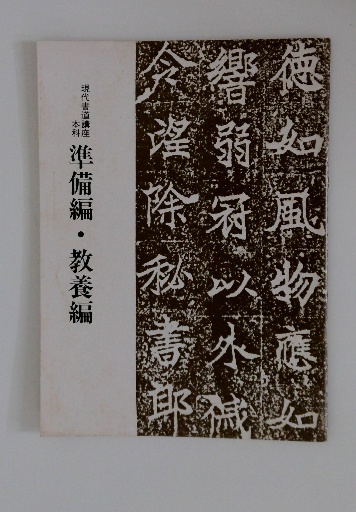 徳如風物應如
響弱冠以外戚
令望除秘書郎
現代書道講座
本科
準備編・教養編